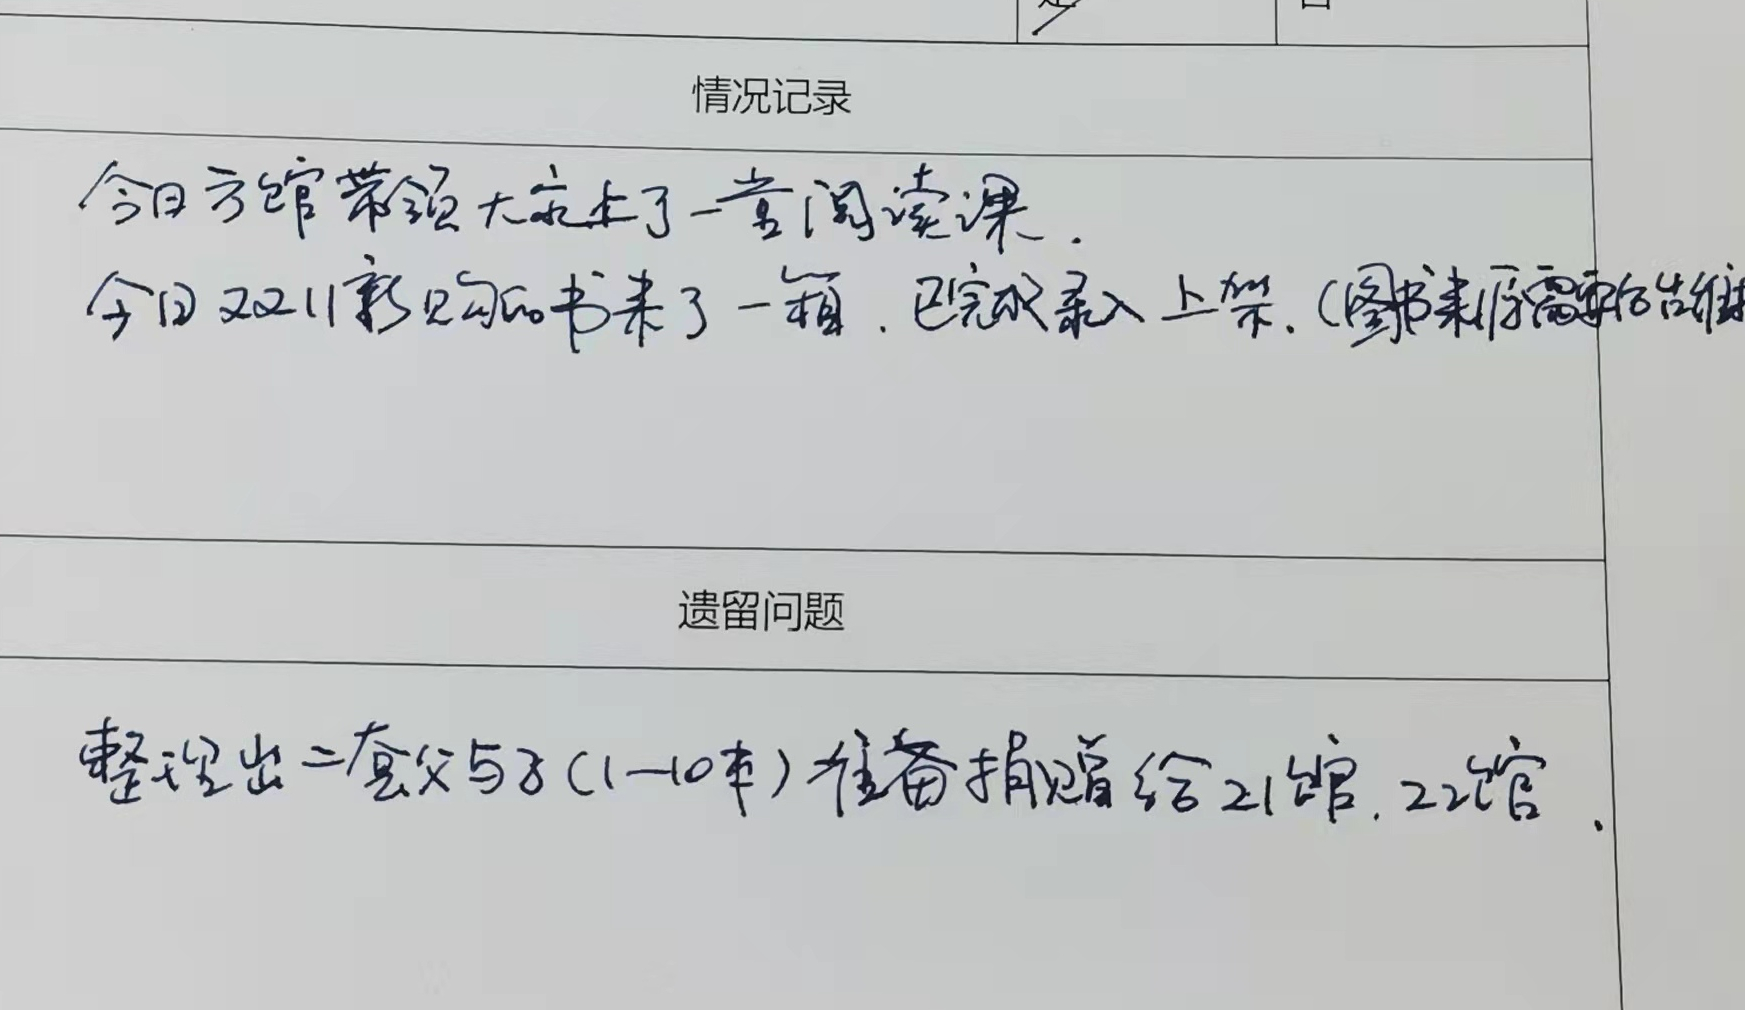 情况记录
今日方馆带领大家上了一堂阅读课.
今日双11新购的书来了一箱.已完成录入上架.(图书来源需要
遗留问题
整理出二套父与子(1—10本)准备捐赠给21馆.22馆.